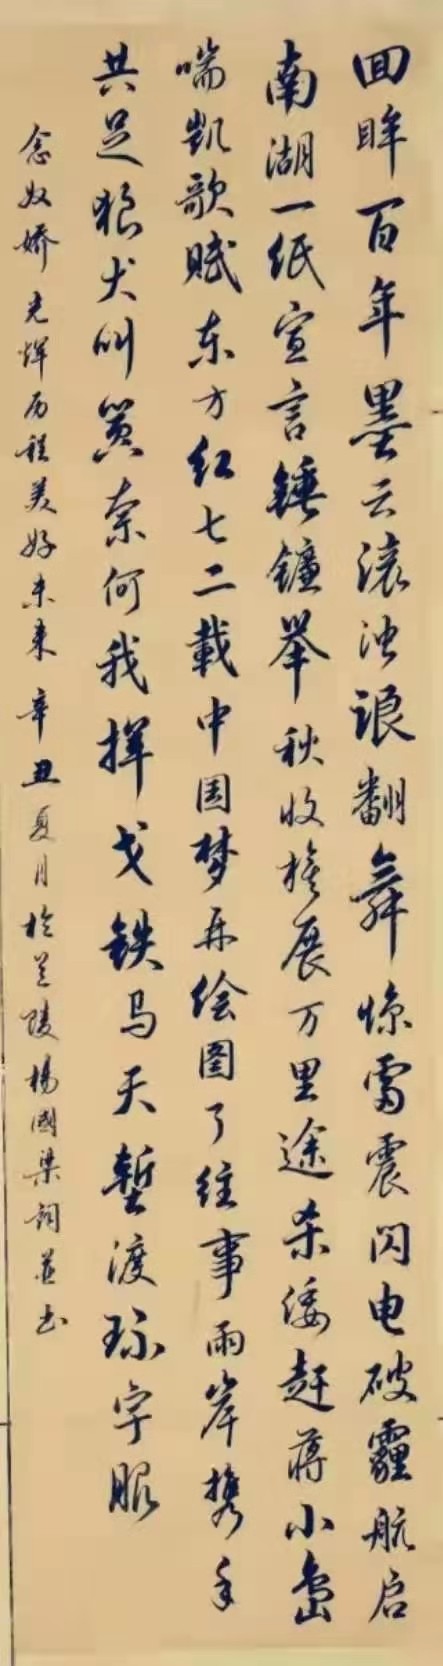 回眸百年墨云滚浊浪翻舞惊雷震闪电破霾航启
南湖一纸宣言锤镰举秋收旌展万里途杀倭赶蒋小岛
喘凯歌赋东方红七二载中国梦再绘图了往事两岸携手
共足狼犬叫嚣奈何我挥戈铁马天堑渡环宇服
念奴娇光辉历程美好未来辛丑夏月於兰陵杨國梁词並书